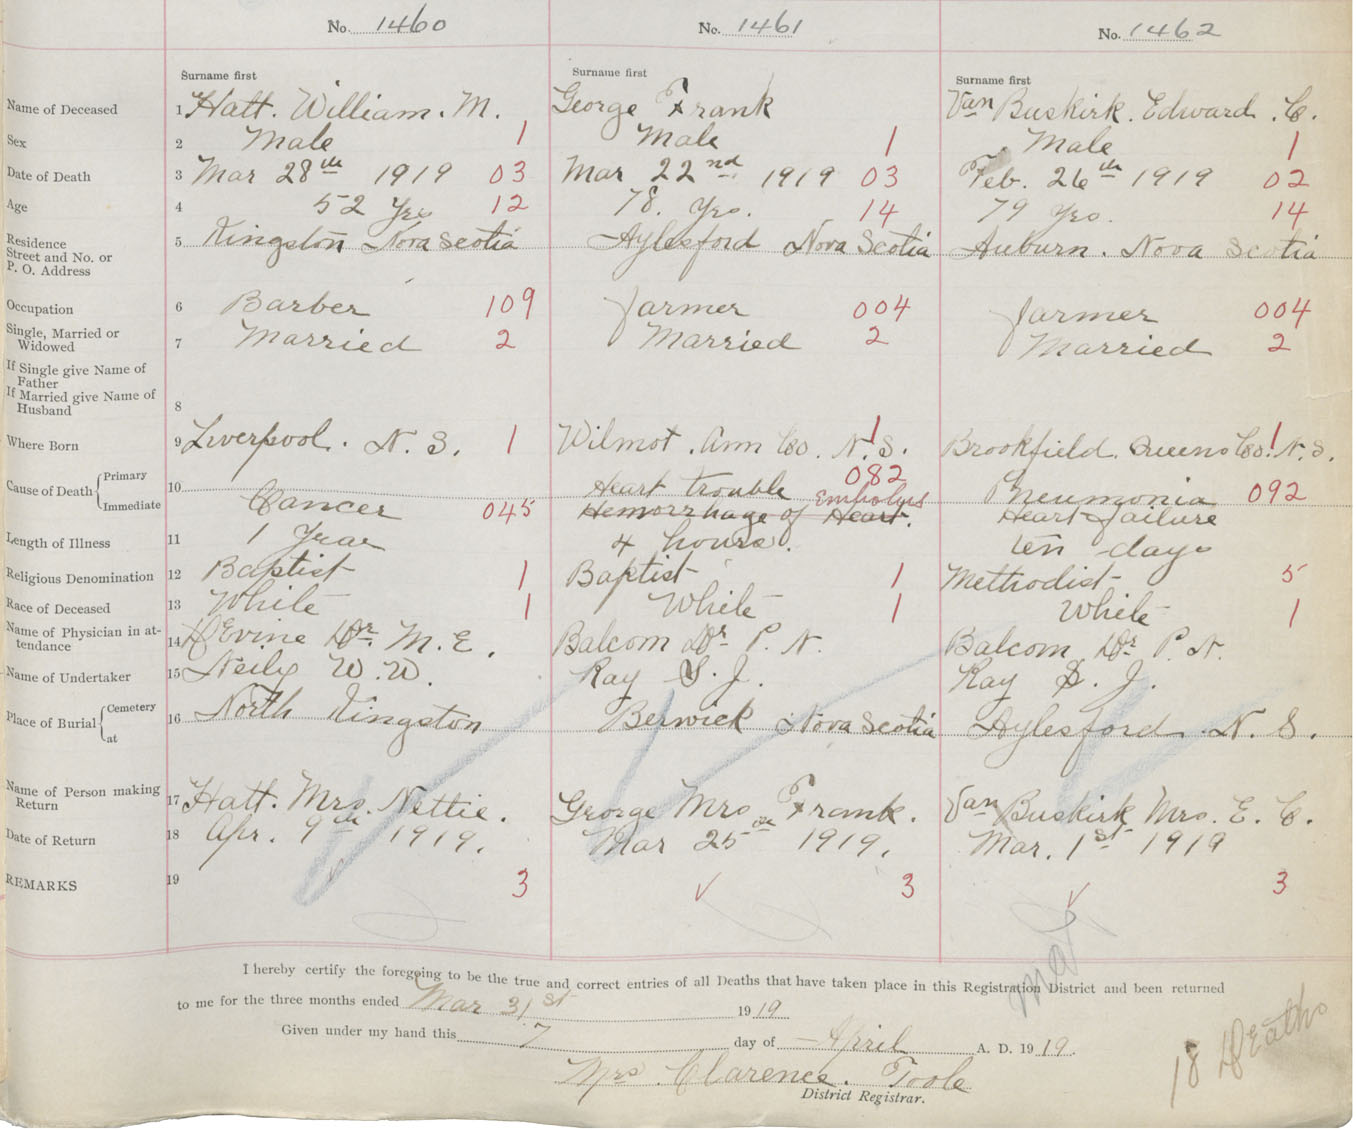 No. 1460 No. 1461 No. 1462
Surname first Surname first Surname first
Name of Deceased 1 Hatt. William. M. George Frank Van Buskirk. Edward. C.
Sex 2 Male 1 Male 1 Male 1
Date of Death 3 Mar 28th 1919 03 Mar 22nd 1919 03 Feb. 26th 1919 02
Age 4 52 Yrs 12 78. Yrs. 14 79 Yrs. 14
Residence
Street and No. or
P. O. Address 5 Kingston Nova Scotia Aylesford Nova Scotia Auburn. Nova Scotia
Occupation 6 Barber 109 farmer 004 farmer 004
Single, Married or
Widowed 7 Married 2 Married 2 Married 2
If Single give Name of
Father
If Married give Name of
Husband 8
Where Born 9 Liverpool. N. S. 1 Wilmot. Ann Co. N. S. 1 Brookfield. Queens Co. N. S. 1
Cause of Death Primary 10 Heart trouble 082 Pneumonia 092
Immediate Cancer 045 Hemorrhage of Heart. Embolus Heart failure
Length of Illness 11 1 Year 4 hours. ten days
Religious Denomination 12 Baptist 1 Baptist 1 Methodist 5
Race of Deceased 13 White 1 White 1 White 1
Name of Physician in at-
tendance 14 DEvine Dr. M. E. Balcom Dr. P. N. Balcom Dr P. N.
Name of Undertaker 15 Neily W. W. Ray S. J. Ray S. J.
Place of Burial Cemetery
at 16 North Kingston Berwick Nova Scotia Aylesford N. S.
Name of Person making
Return 17 Hatt. Mrs. Nettie. George Mrs Frank. Van Buskirk Mrs. E. C.
Date of Return 18 Apr. 9th 1919. Mar 25th 1919. Mar. 1st 1919
REMARKS 19 3 3 3
I hereby certify the foregoing to be the true and correct entries of all Deaths that have taken place in this Registration District and been returned
to me for the three months ended Mar 31st 1919
Given under my hand this 7 day of April A. D. 1919.
Mrs. Clarence. Toole
District Registrar.
18 Deaths